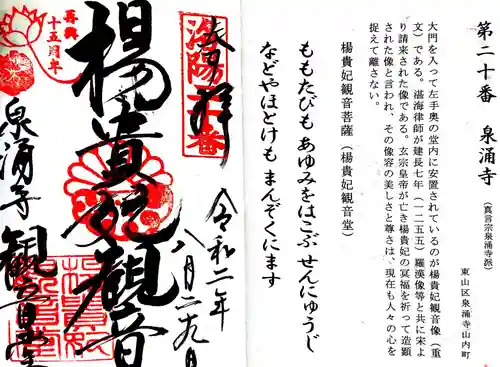 第二十番　泉涌寺
（真言宗泉涌寺派）
東山区泉涌寺山内町
大門を入って左手奥の堂内に安置されているのが楊貴妃観音像（重
文）である。湛海律師が建長七年（一二五五）羅漢像等と共に宋よ
り請来された像である。玄宗皇帝が亡き楊貴妃の冥福を祈って造顕
された像と言われ、その像容の美しさと尊さは、現在も人々の心を
捉えて離さない。
楊貴妃観音菩薩（楊貴妃観音堂）
ももたびも あゆみをはこぶ せんにゅうじ
などやほとけも まんぞくにます
奉拝
令和二年
八月二九日
洛陽二十番
楊貴妃観音
再興
十五周年
泉涌寺
観音堂